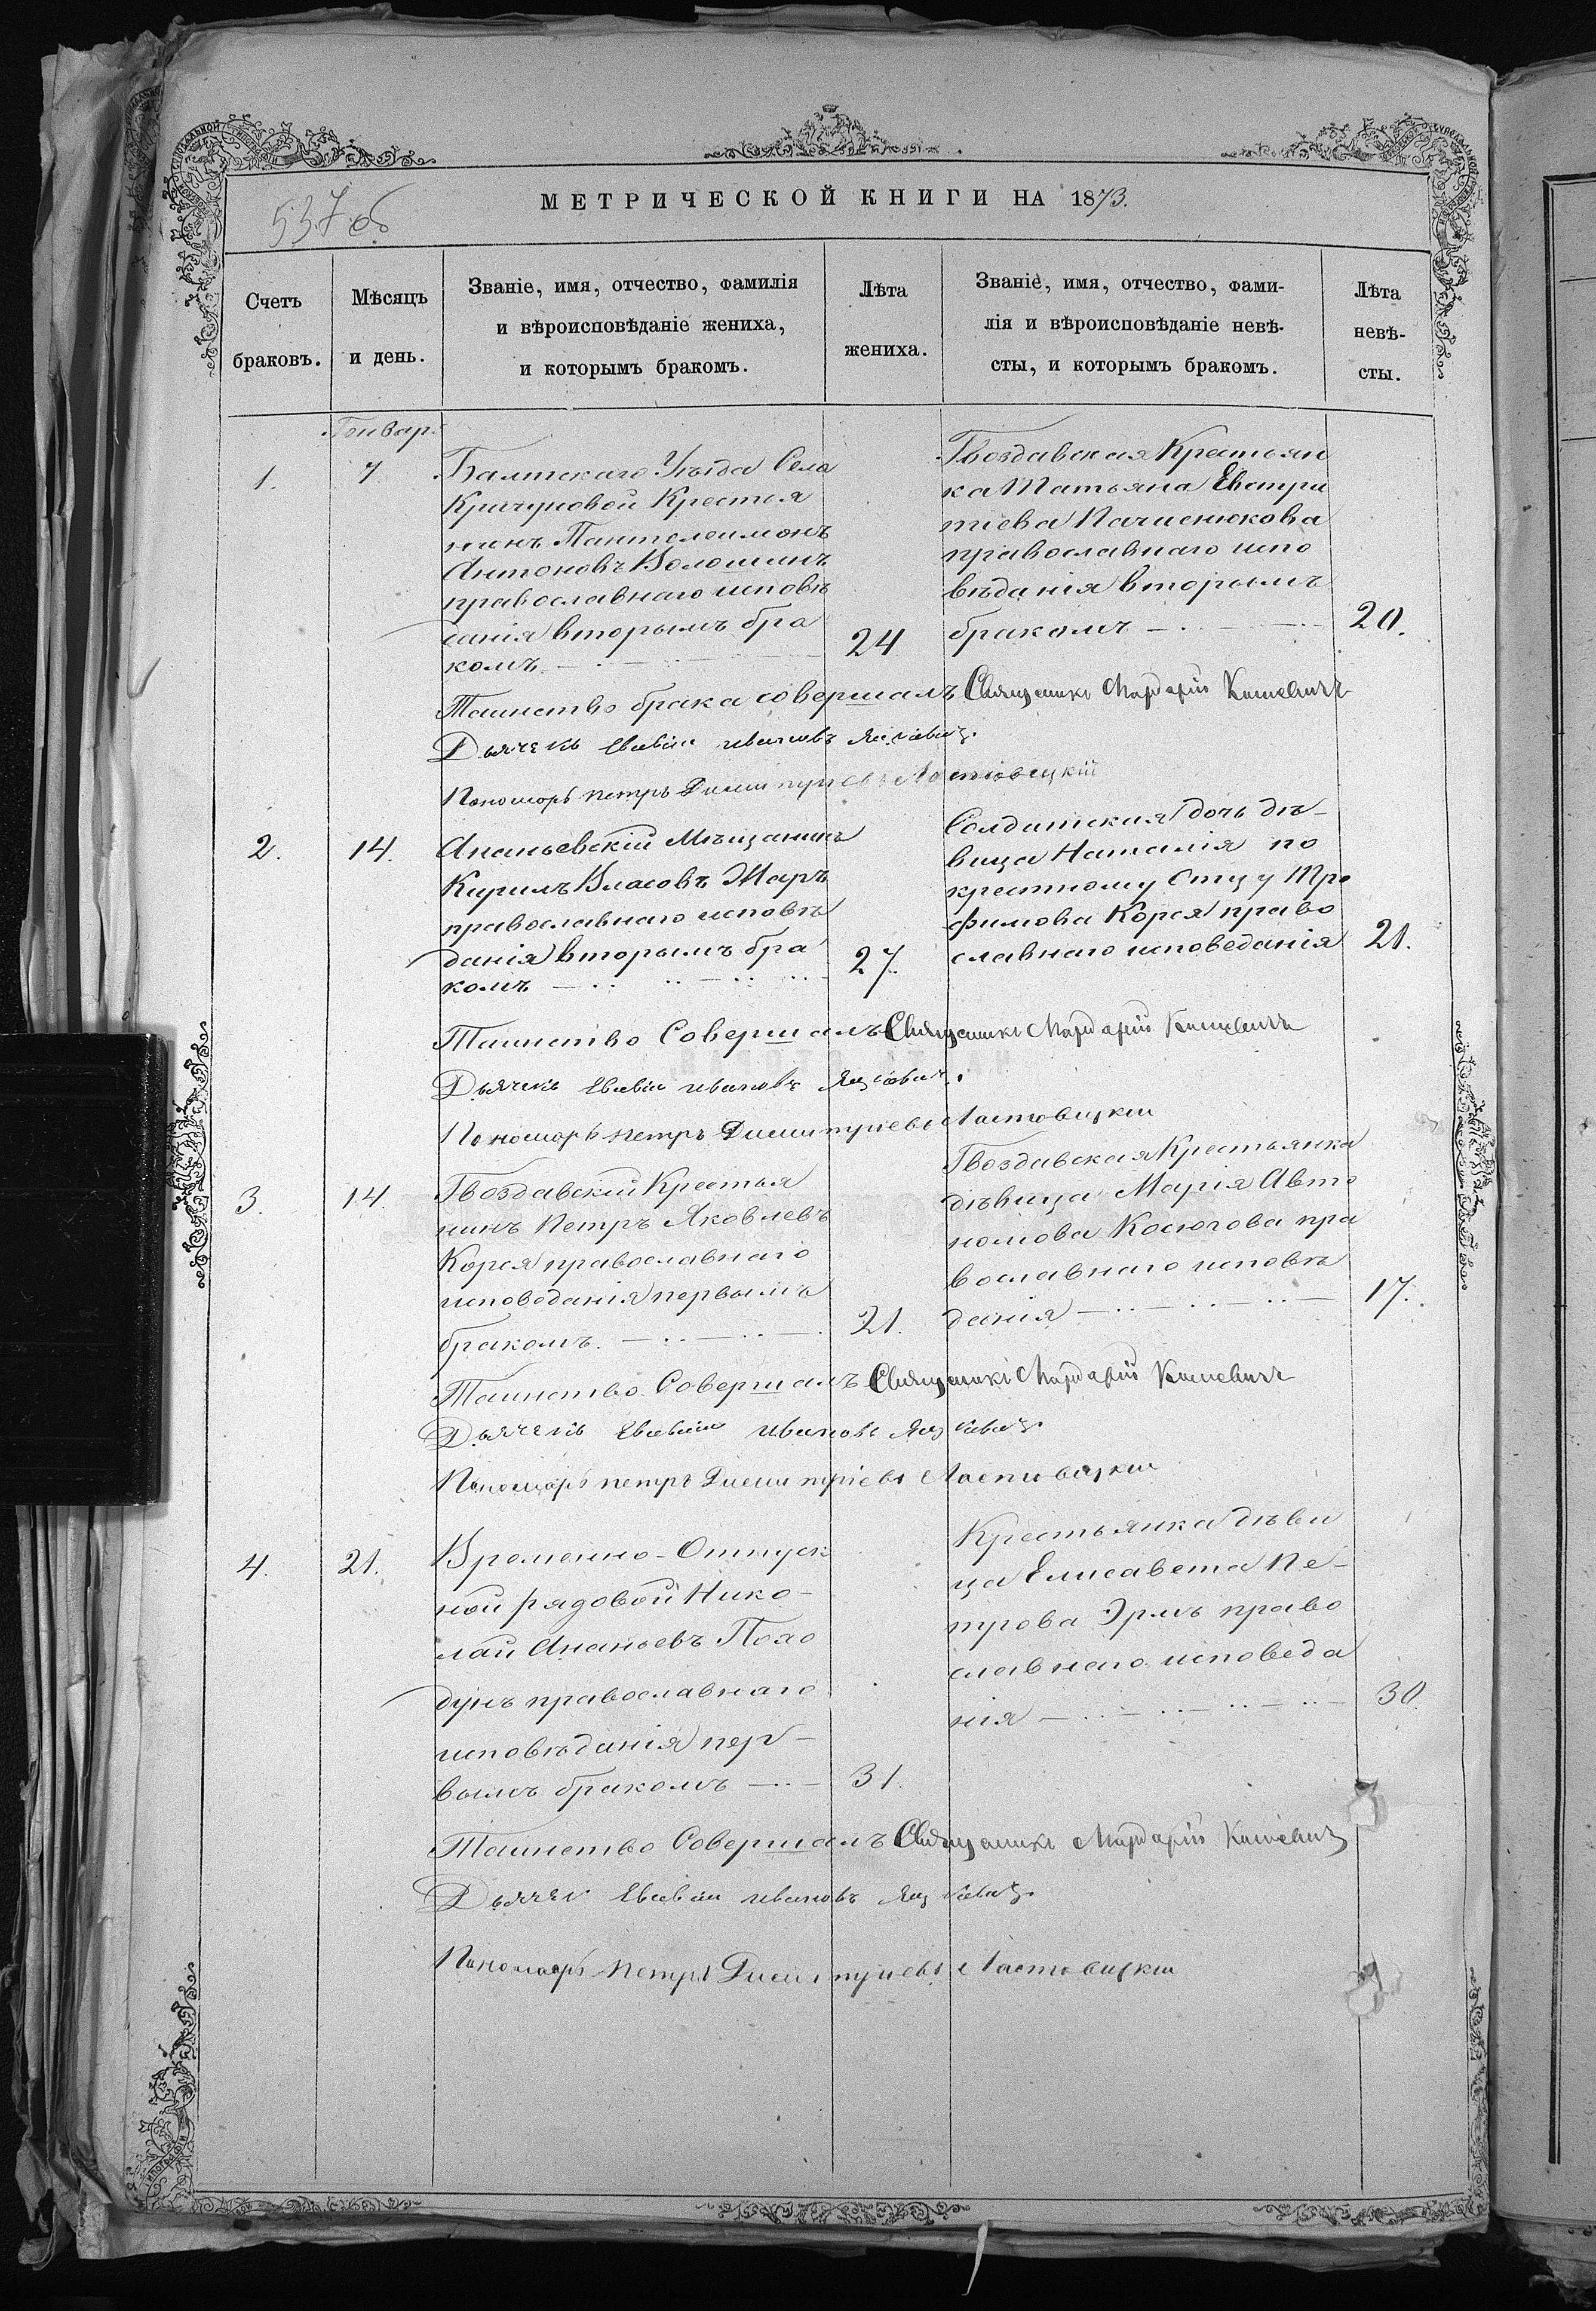 МЕТРИЧЕСКОЙ КНИГИ НА 1873.
537 об
Счетъ браковъ.
Мѣсяцъ и день.
Званіе, имя, отчество, фамилія
и вѣроисповѣданіе жениха,
и которымъ бракомъ.
Лѣта
жениха.
Званіе, имя, отчество, фами-
лія и вѣроисповѣданіе невѣ-
сты, и которымъ бракомъ.
Лѣта
невѣ-
сты.
Генварь
1.
7.
Балтскаго Уѣзда Села
Кричуновой Крестья
нинъ Пантелеимонъ
Антоновъ Волошинъ
православнаго исповѣ
данія вторымъ бра
комъ
24
Гвоздавская Крестьян
ка Татьяна Евстра
тіева
православнаго испо
вѣданія вторымъ
бракомъ
20.
Таинство брака совершалъ Священникъ Мардарій
Дьячекъ Ивановъ
Пономарь Петръ Димитріевъ Ластовецкій
2.
14.
Ананьевскій Мѣщанинъ
Кирилъ Власовъ Жаръ
православнаго исповѣ
данія вторымъ бра
комъ
27.
Солдатская дочь дѣ-
вица Наталія по
крестному Отцу Тро
фимова Корся право
славнаго исповеданія
21.
Таинство Совершалъ Священникъ Мардарій
Дьячекъ Ивановъ
Пономарь Петръ Димитріевъ Ластовецкій
3.
14.
Гвоздавскій Крестья
нинъ Петръ Яковлевъ
Корся православнаго
исповеданія первымъ
бракомъ.
21.
Гвоздавская Крестьянка
дѣвица Марія Авто
номова Косючова пра
вославнаго исповѣ
данія
17.
Таинство Совершалъ Священникъ Мардарій
Дьячекъ Ивановъ
Пономарь Петръ Димитріевъ Ластовецкій
4.
21.
Временно-Отпуск
ной рядовой Нико-
лай Ананьевъ
дунъ православнаго
исповѣданія пер-
вымъ бракомъ
31.
Крестьянка дѣви
ца Елисавета Пе-
трова право
славнаго исповеда
нія
30
Таинство Совершалъ Священникъ Мардарій
Дьячекъ Ивановъ
Пономарь Петръ Димитріевъ Ластовецкій